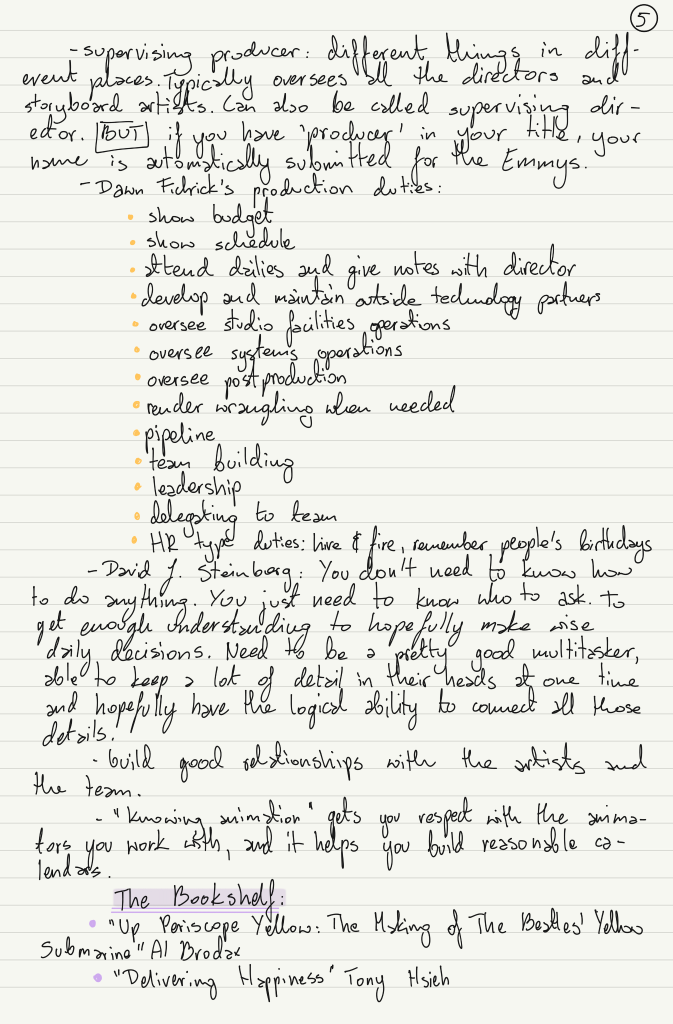 5
- supervising producer: different things in diff-
erent places. Typically oversees all the directors and
storyboard artists. Can also be called supervising dir-
ector. BUT if you have 'producer' in your title, your
name is automatically submitted for the Emmys.
- Dawn Fidrick's production duties:
• show budget
• show schedule
• attend dailies and give notes with director
• develop and maintain outside technology partners
• oversee studio facilities operations
• oversee systems operations
• oversee postproduction
• render wrangling when needed
• pipeline
• team building
• leadership
• delegating to team
• HR type duties: hire & fire, remember people's birthdays
- David J. Steinberg: You don't need to know how
to do anything. You just need to know who to ask. To
get enough understanding to hopefully make wise
daily decisions. Need to be a pretty good multitasker,
able to keep a lot of detail in their heads at one time
and hopefully have the logical ability to connect all those
details.
- build good relationships with the artists and
the team.
- "knowing animation" gets you respect with the anima-
tors you work with, and it helps you build reasonable ca-
lendars.
The Bookshelf:
• "Up Periscope Yellow: The Making of The Beatles' Yellow
Submarine" Al Brodax
• "Delivering Happiness" Tony Hsieh